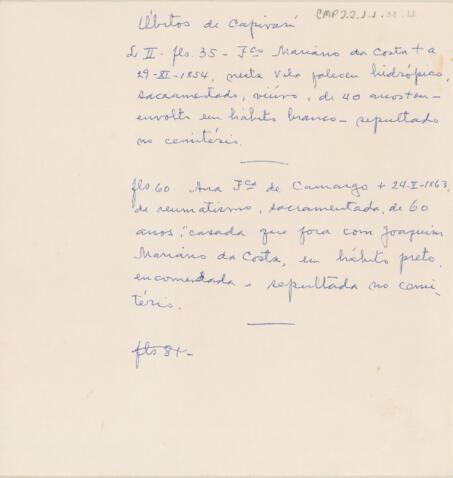 Óbitos de Capivari
CMP 2.2.1.1
L II - fls. 35 - Fco Mariano da Costa + a
29-XI-1854, nesta Vila faleceu hidrópico,
sacramentado, viúvo, de 40 anos
envolto em hábito branco - sepultado
no cemitério.
fls 60 Ana Fca de Camargo + 24-I-1863,
de reumatismo, sacramentada, de 60
anos, casada que fora com Joaquim
Mariano da Costa, em hábito preto,
encomendada e sepultada no cemi-
tério.
fls 8